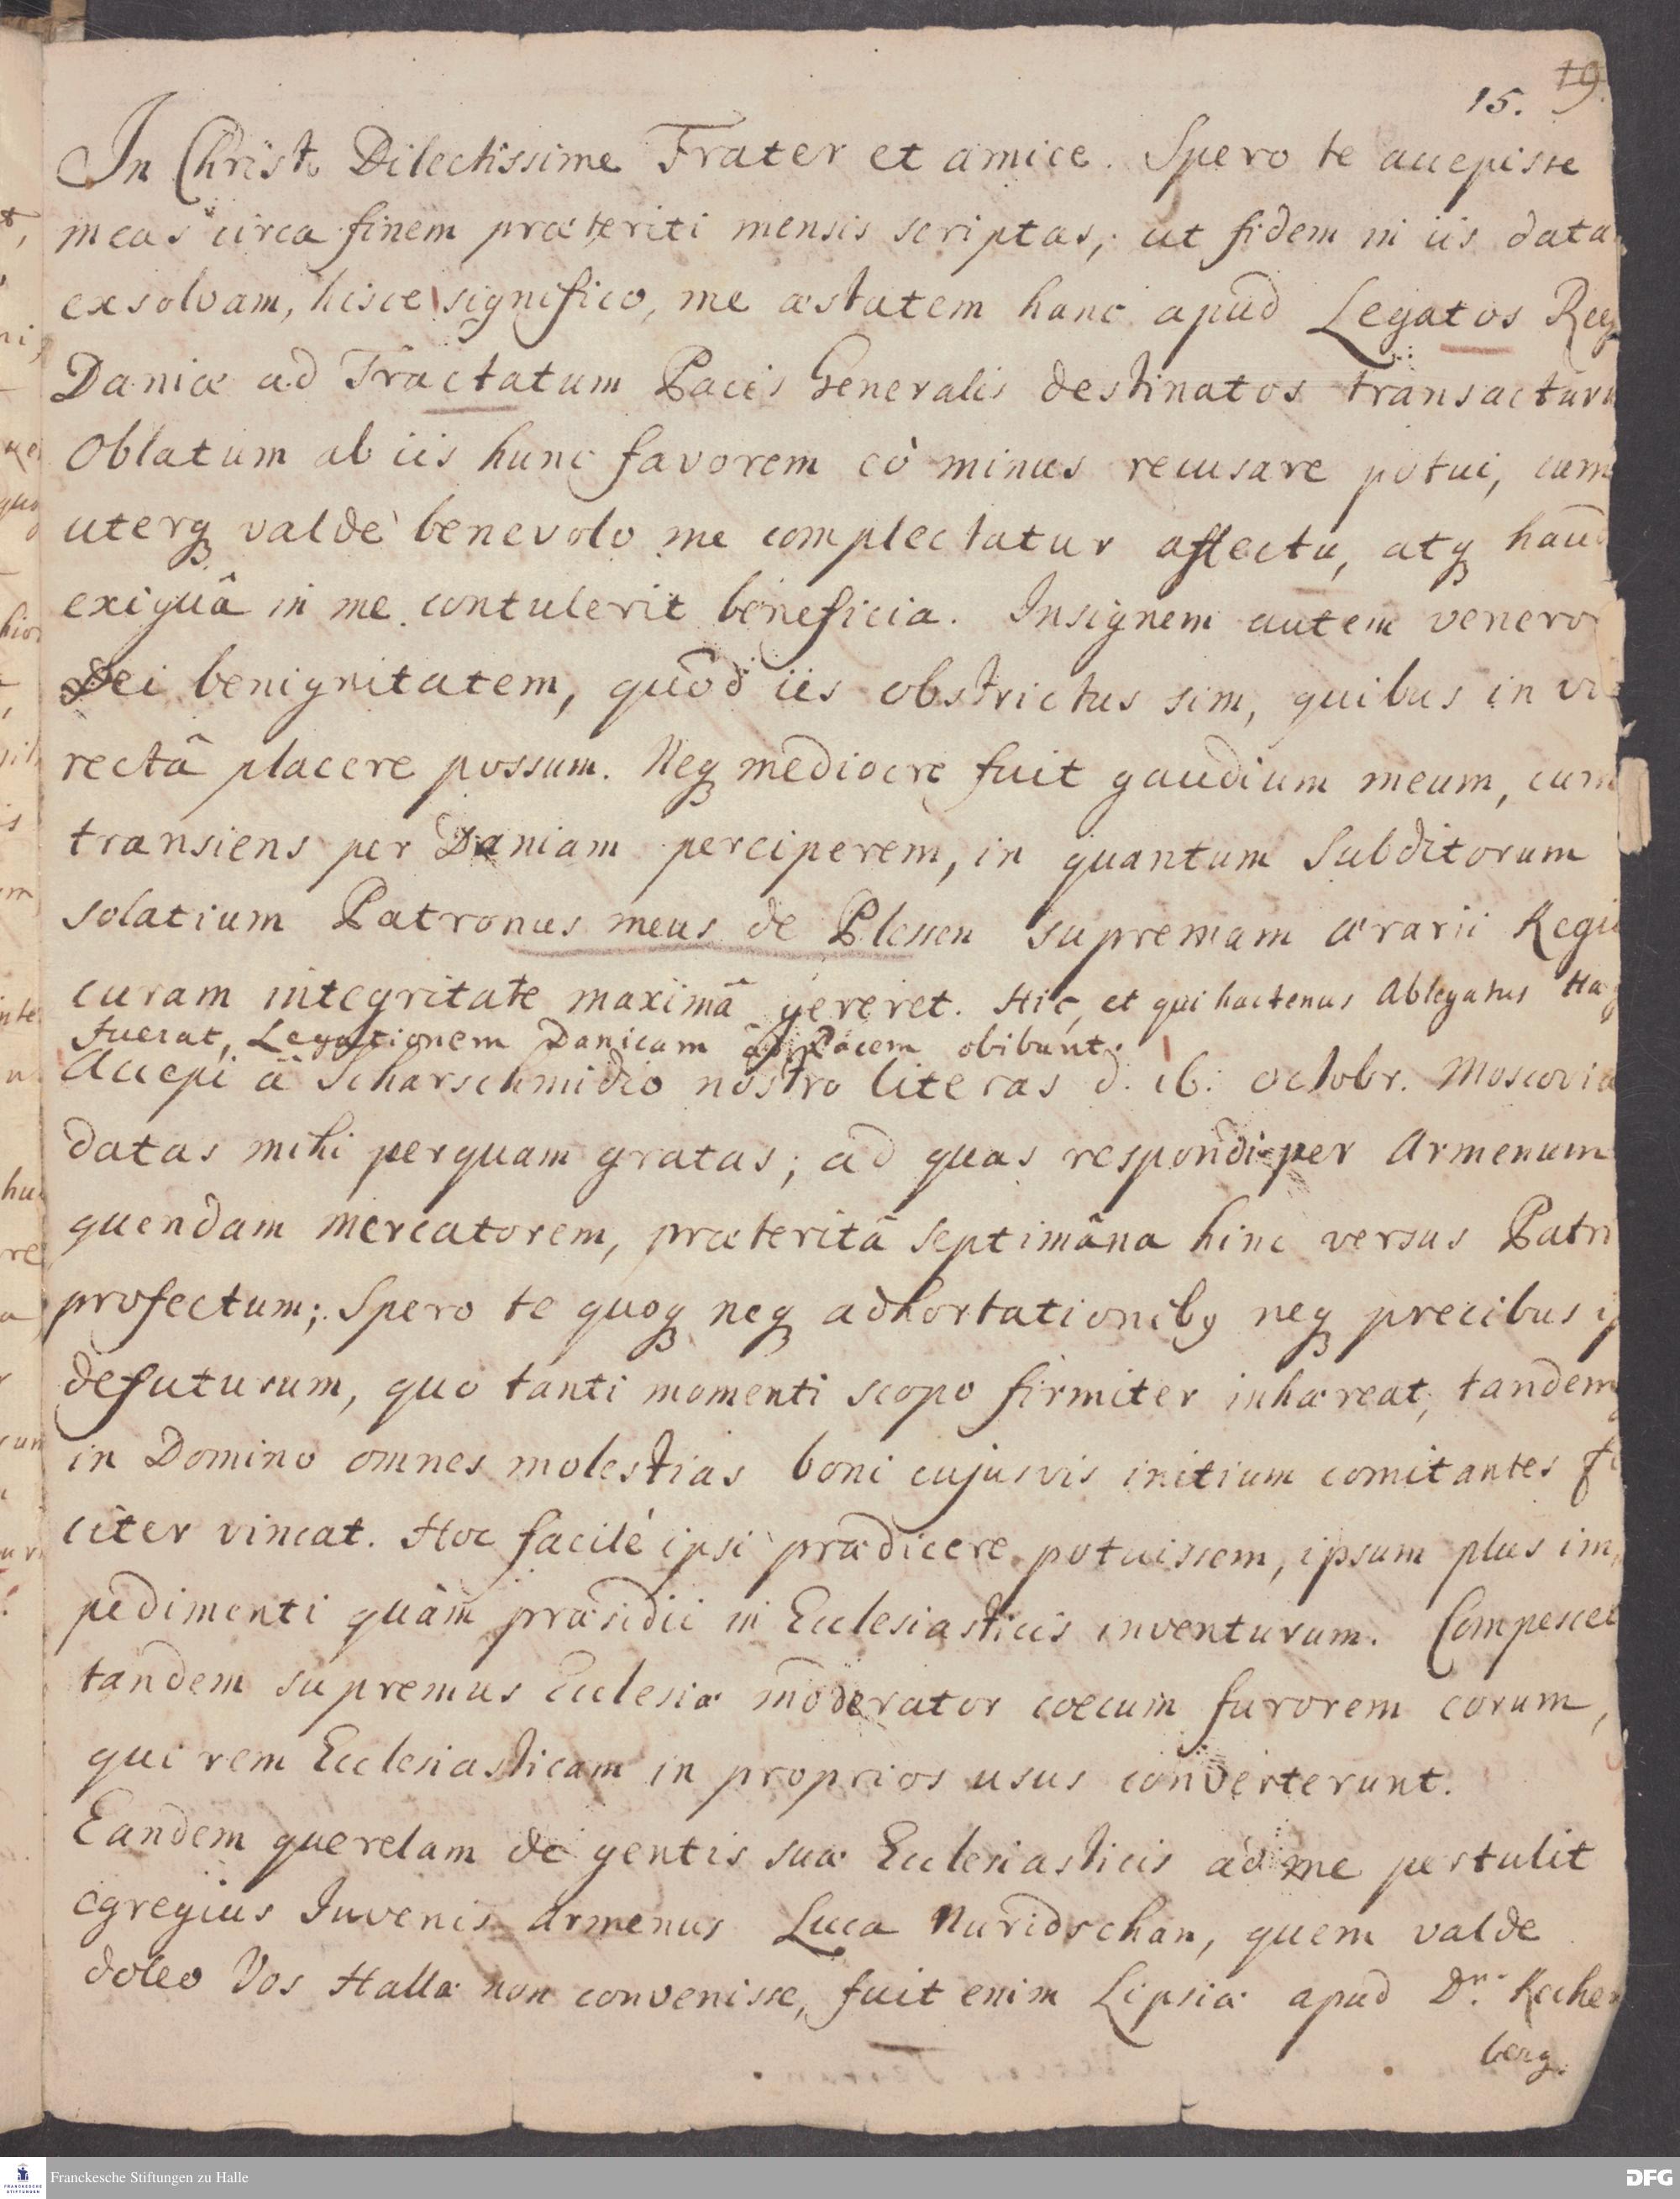 15. 19.
In Christo Dilectissime Frater et amice. Spero te accepisse
meas circa finem præteriti mensis scriptas; ut fidem in iis data
exsolvam, hisce significo, me æstatem hanc apud Legatos Reg
Daniæ ad Tractatum Pacis Generalis destinatos transacturu
Oblatum ab iis hunc favorem eò minus recusare potui, cum
uterq valdè benevolo me complectatur affectu, atq haud
exiguâ in me contulerit beneficia. Insignem autem veneror
Dei benignitatem, quòd iis obstrictus sim, quibus in vi
rectâ placere possum. Neq mediocre fuit gaudium meum, cum
transiens per Daniam perciperem, in quantum Subditorum
solatium Patronus meus de Plessen supremam ærarii Regii
curam integritate maximâ gereret. Hic, et qui hactenus Ablegatus Hag
fuerat, Legationem Danicam ad Pacem obibunt.
Accepi â Scharschmidio nostro literas d. 16. octobr. Moscovia
datas mihi perquam gratas; ad quas respondi per Armenum
quendam mercatorem, præteritâ septimâna hinc versus Patri
profectum; Spero te quoq neq adhortationiby neq precibus ip
defuturum, quo tanti momenti scopo firmiter inhæreat, tandemq
in Domino omnes molestias boni cujusvis initium comitantes fe
citer vincat. Hoc facilè ipsi prædicere potuissem, ipsum plus im,
pedimenti quàm præsidii in Ecclesiasticis inventurum. Compescet
tandem supremus Ecclesiæ moderator coecum furorem eorum,
qui rem Ecclesiasticam in proprios usus converterunt.
Eandem querelam de gentis suæ Ecclesiasticis ad me pertulit
egregius Juvenis Armenus Luca Nuridschan, quem valde
doleo Vos Hallæ non convenisse, fuit enim Lipsiæ apud Dn. Rechen
berg.
Franckesche Stiftungen zu Halle
FRANCKESCHE STIFTUNGEN
DFG